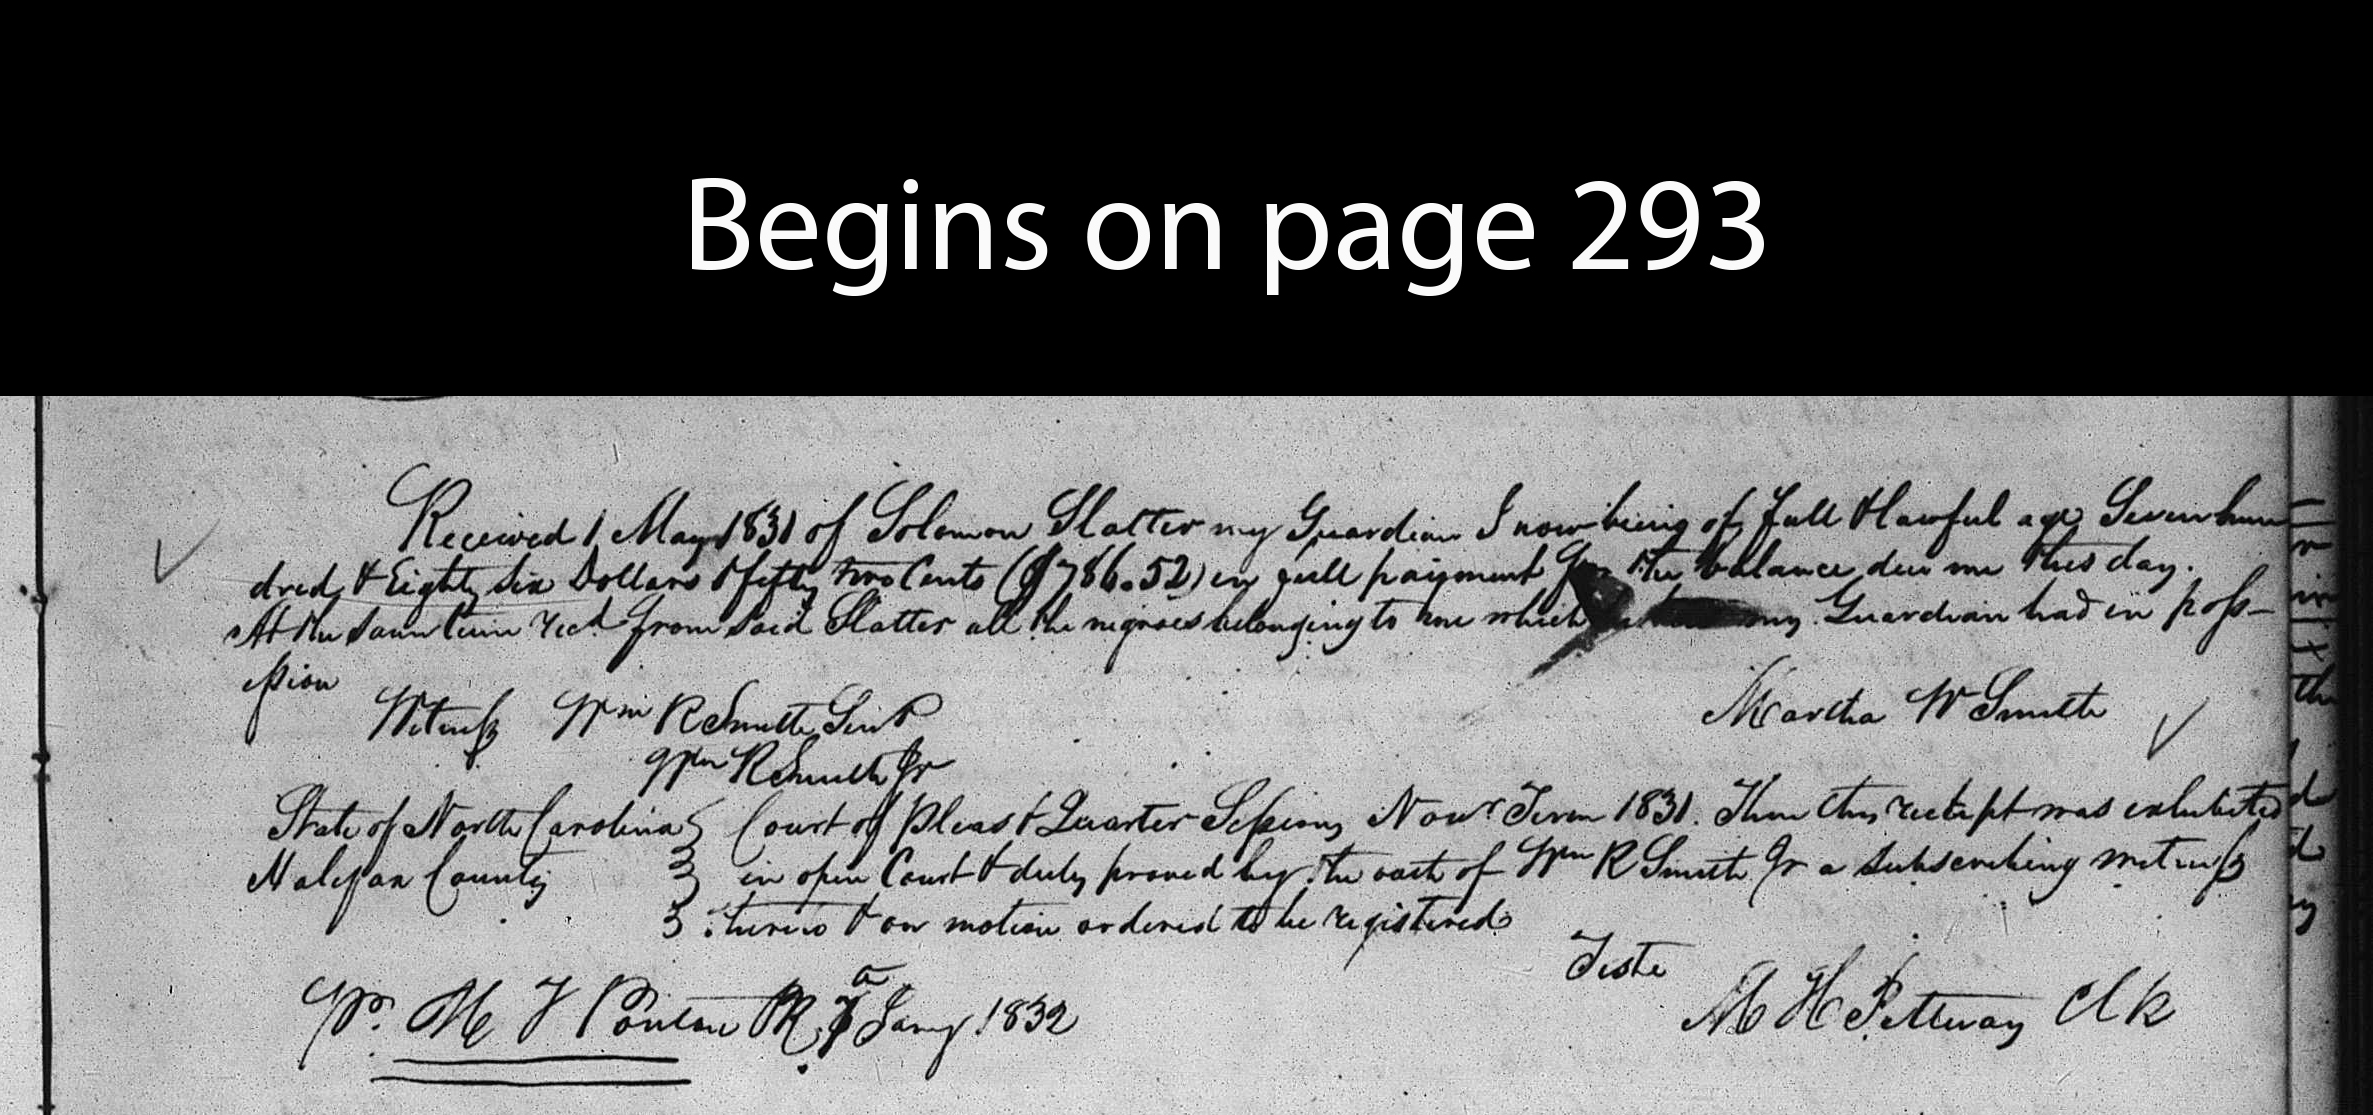 Begins on page 293
Received 1 May 1831 of Solomon Slatter my Guardian I now being of full & lawful age Seven hun
dred & Eighty Six Dollars & fifty two Cents ($786.52) in full paiyment for the balance due me this day.
At the same time recd. from said Slatter all the negroes belonging to me which my Guardian had in poss-
ession
Witness Wm R Smith Senr
Martha W Smith
Wm R Smith Jr
State of North Carolina Court of Pleas & Quarter Sessions Novr Term 1831. Then this reciept was exhibited
Halifax County in open Court & duly proved by the oath of Wm R Smith Jr a subscribing witness
thereto & on motion ordered to be registered
Teste
M H Pettway Clk
M T Ponton P.R. Jany 1832